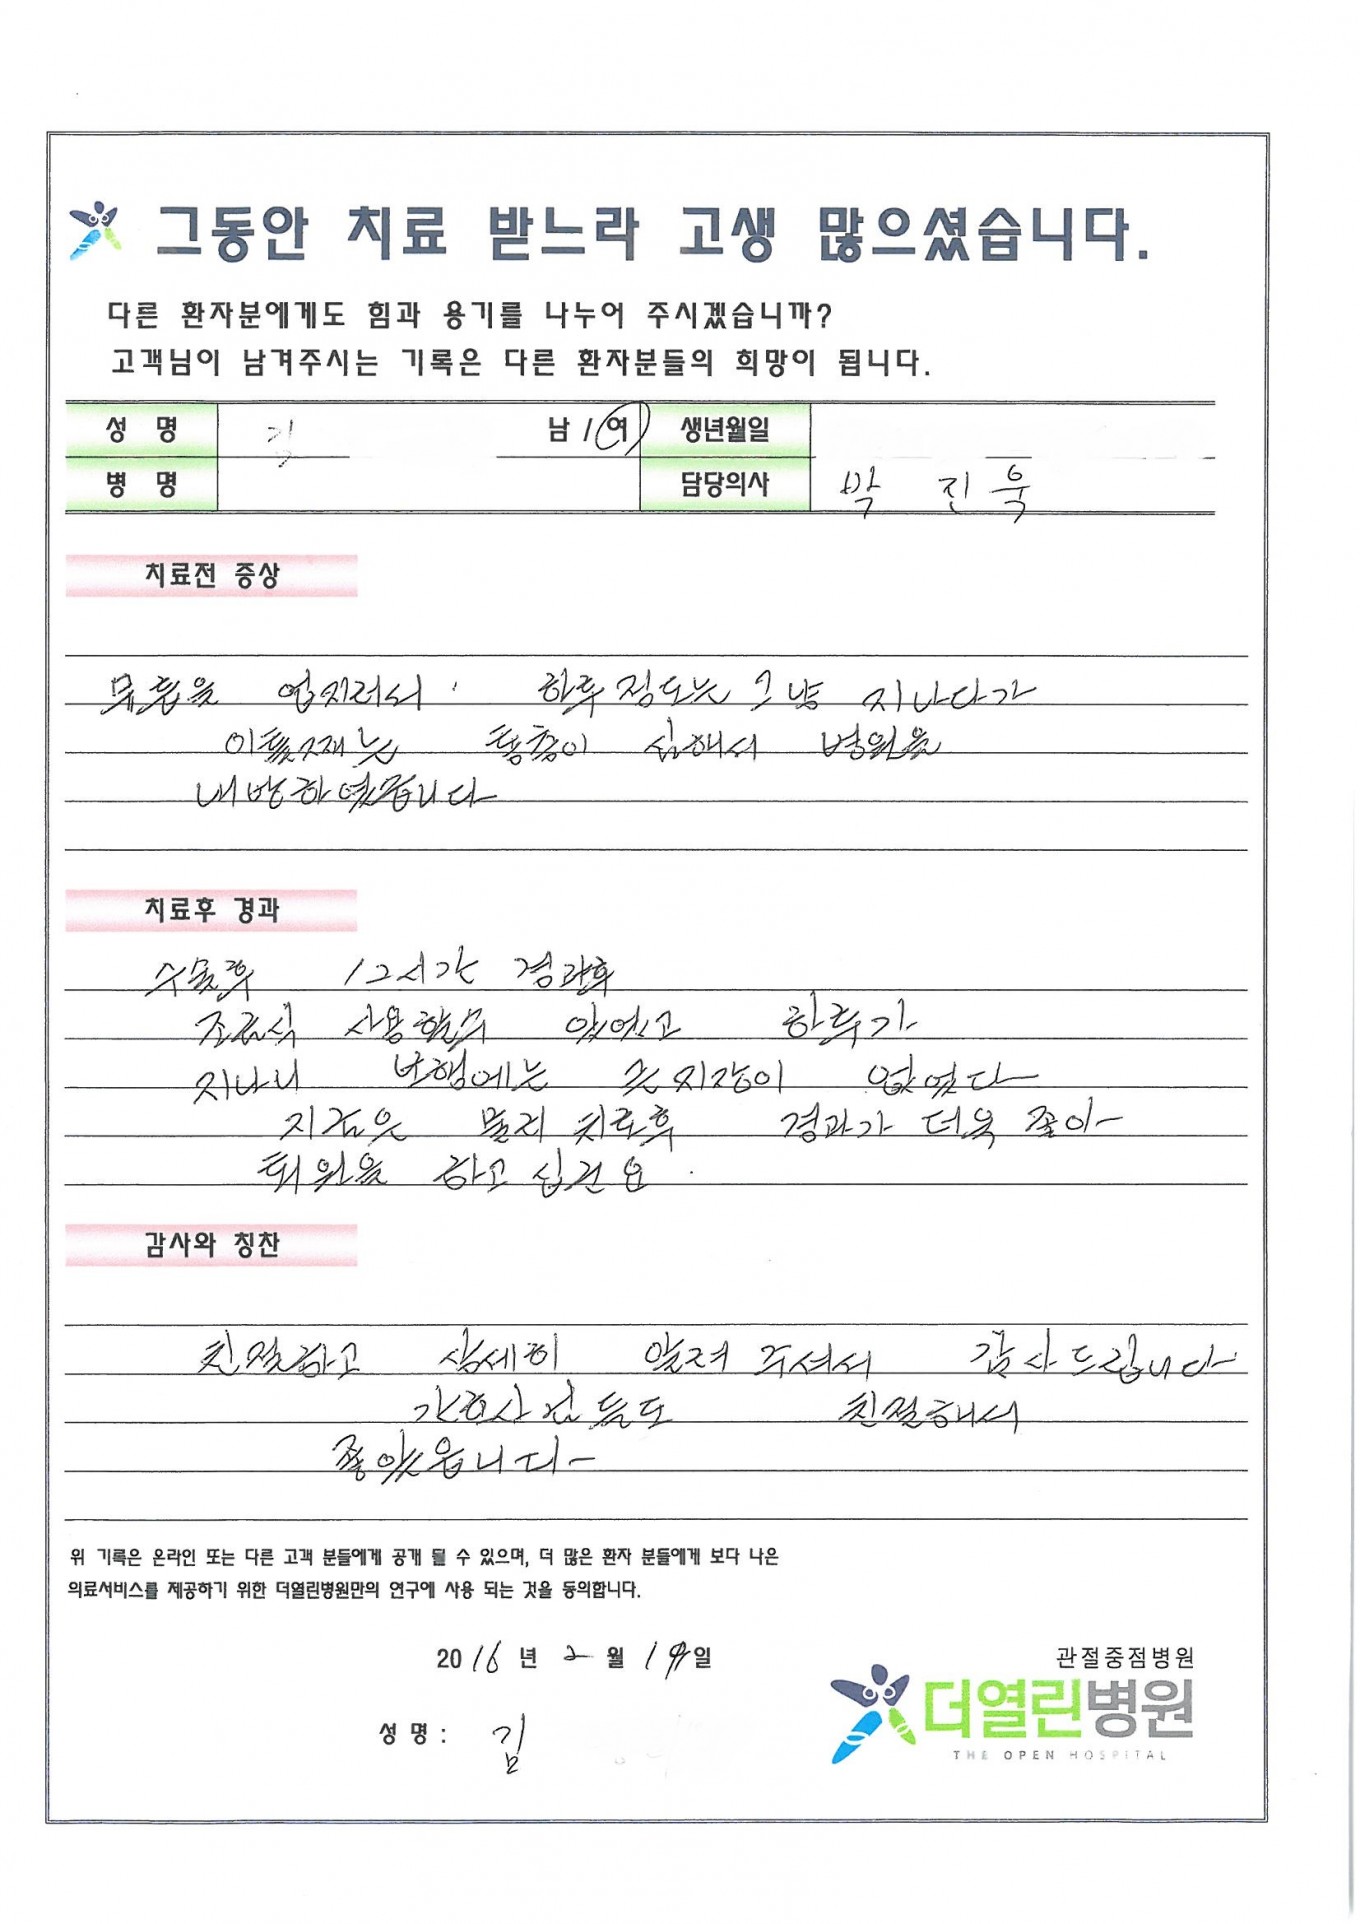 그동안 치료 받느라 고생 많으셨습니다.
다른 환자분에게도 힘과 용기를 나누어 주시겠습니까?
고객님이 남겨주시는 기록은 다른 환자분들의 희망이 됩니다.
성 명 김 남 / 여 생년월일
병 명 담당의사 박 진욱
치료전 증상
무릎을 업지러서 . 하루 정도는 그냥 지나다가
이틀째는 통증이 심해서 병원을
내방하였읍니다
치료후 경과
수술후 12시간 경과후
조금식 사용할수 있었고 하루가
지나니 보행에는 큰 지장이 없었다
지금은 물리 치료후 경과가 더욱 좋아
퇴원을 하고 십건요 .
감사와 칭찬
친절하고 상세히 알려 주셔서 감사드립니다
간호사님들도 친절해서
좋았읍니다
위 기록은 온라인 또는 다른 고객 분들에게 공개 될 수 있으며, 더 많은 환자 분들에게 보다 나은
의료서비스를 제공하기 위한 더열린병원만의 연구에 사용 되는 것을 동의합니다.
2016 년 2 월 19일
성 명 : 김
관절중점병원
더열린병원
THE OPEN HOSPITAL